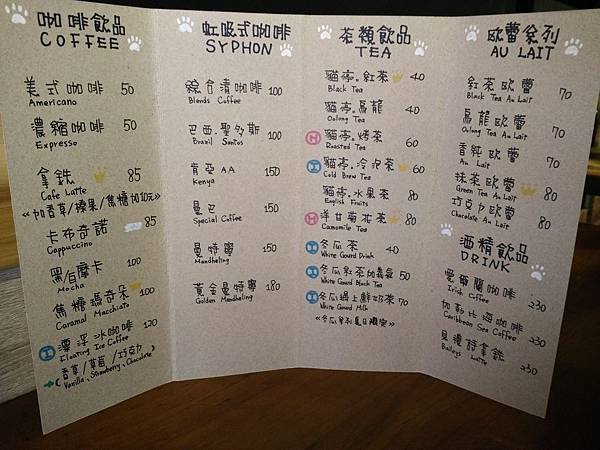 咖啡飲品
COFFEE
美式咖啡 50
Americano
濃縮咖啡 50
Expresso
拿鐵 85
Cafe Latte
《加香草/榛果/焦糖加10元》
卡布奇諾 85
Cappuccino
黑白摩卡 100
Mocha
焦糖瑪奇朵 100
Caramal Macchiato
漂浮冰咖啡 120
Floating Ice Coffee
(香草/草莓/巧克力)
Vanilla、Strawberry、Chocolate
虹吸式咖啡
SYPHON
綜合漬咖啡 100
Blends Coffee
巴西.聖多斯 100
Brazil Santos
肯亞AA 150
Kenya
曼巴 150
Special Coffee
曼特寧 150
Mandheling
黃金曼特寧 180
Golden Mandheling
茶類飲品
TEA
貓亭.紅茶 40
Black Tea
貓亭.烏龍 40
Oolong Tea
H 貓亭.烤茶 60
Roasted Tea
貓亭.冷泡茶 60
Cold Brew Tea
貓亭.水果茶 80
English Fruits
H 洋甘菊花茶 80
Camomile Tea
冬瓜茶 40
White Gourd Drink
冬瓜紅茶 50
White Gourd Black Tea
冬瓜遇上鮮奶茶 70
White Gourd Milk
《冬瓜系列夏日限定》
歐蕾系列
AU LAIT
紅茶歐蕾 70
Black Tea Au Lait
烏龍歐蕾 70
Oolong Tea Au Lait
香純歐蕾 70
Au Lait
抹茶歐蕾 80
Green Tea Au Lait
巧克力歐蕾 80
Chocolate Au Lait
酒精飲品
DRINK
愛爾蘭咖啡 230
Irish Coffee
加勒比海咖啡 230
Caribbean Sea Coffee
貝禮詩拿鐵 230
Baileys Latte